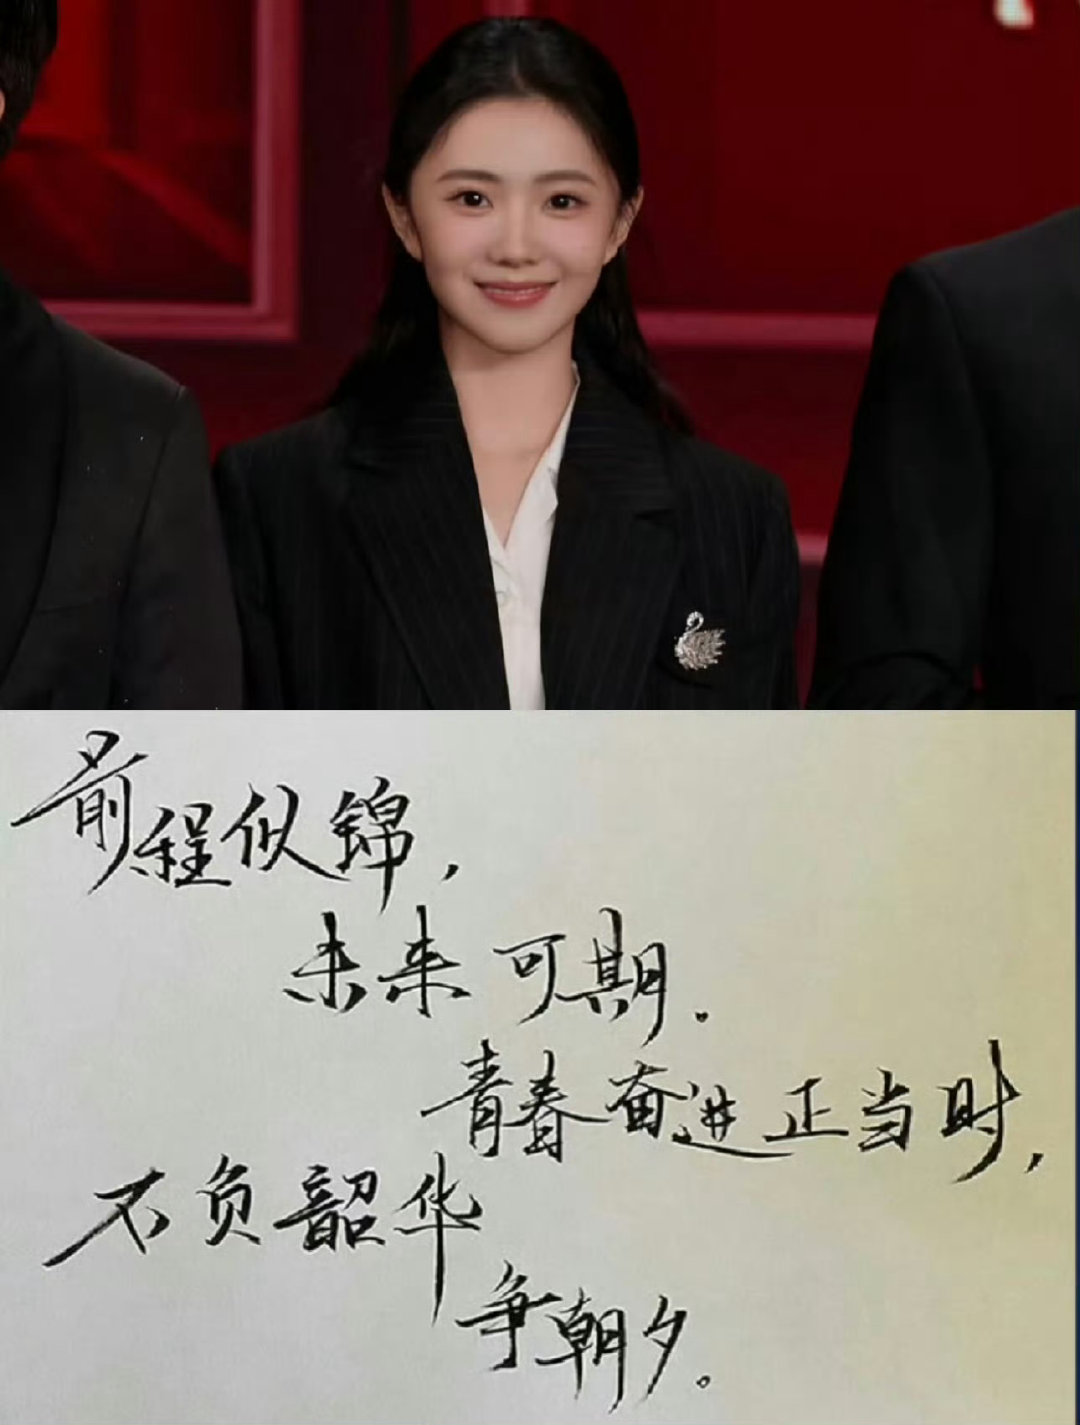 前程似锦，
未来可期.
青春奋进正当时，
不负韶华
争朝夕。